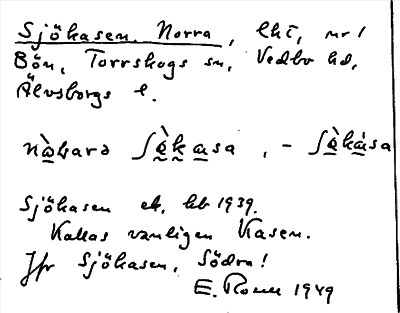 Sjökasen, Norra, lht, nr 1
Bön, Torrskogs sn, Vedbo hd,
Älvsborgs l.
nò̱rarə ʃè̱ka̱sa, - ʃè̱ká̱sa
Sjökasen ek, kb 1939.
Kallas vanligen Kasen.
Jfr Sjökasen, Södra!
E. Rosell 1949